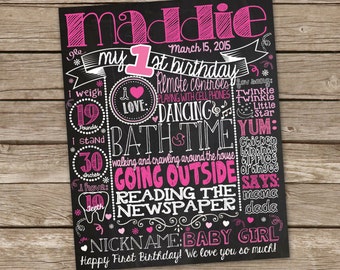 maddie
March 15, 2015
my 1st birthday
I weigh
19
pounds
I stand
30
inches
I have
10
teeth
I
LOVE:
Remote controls
PLAYING WITH CELL PHONES
DANCING
BATH TIME
walking and crawling around the house
GOING OUTSIDE
READING THE
NEWSPAPER
Twinkle
Twinkle
Little
Star
YUM:
CHICKEN
APPLES
SAYS:
mama
dada
NICKNAME: BABY GIRL
Happy First Birthday! We love you so much!